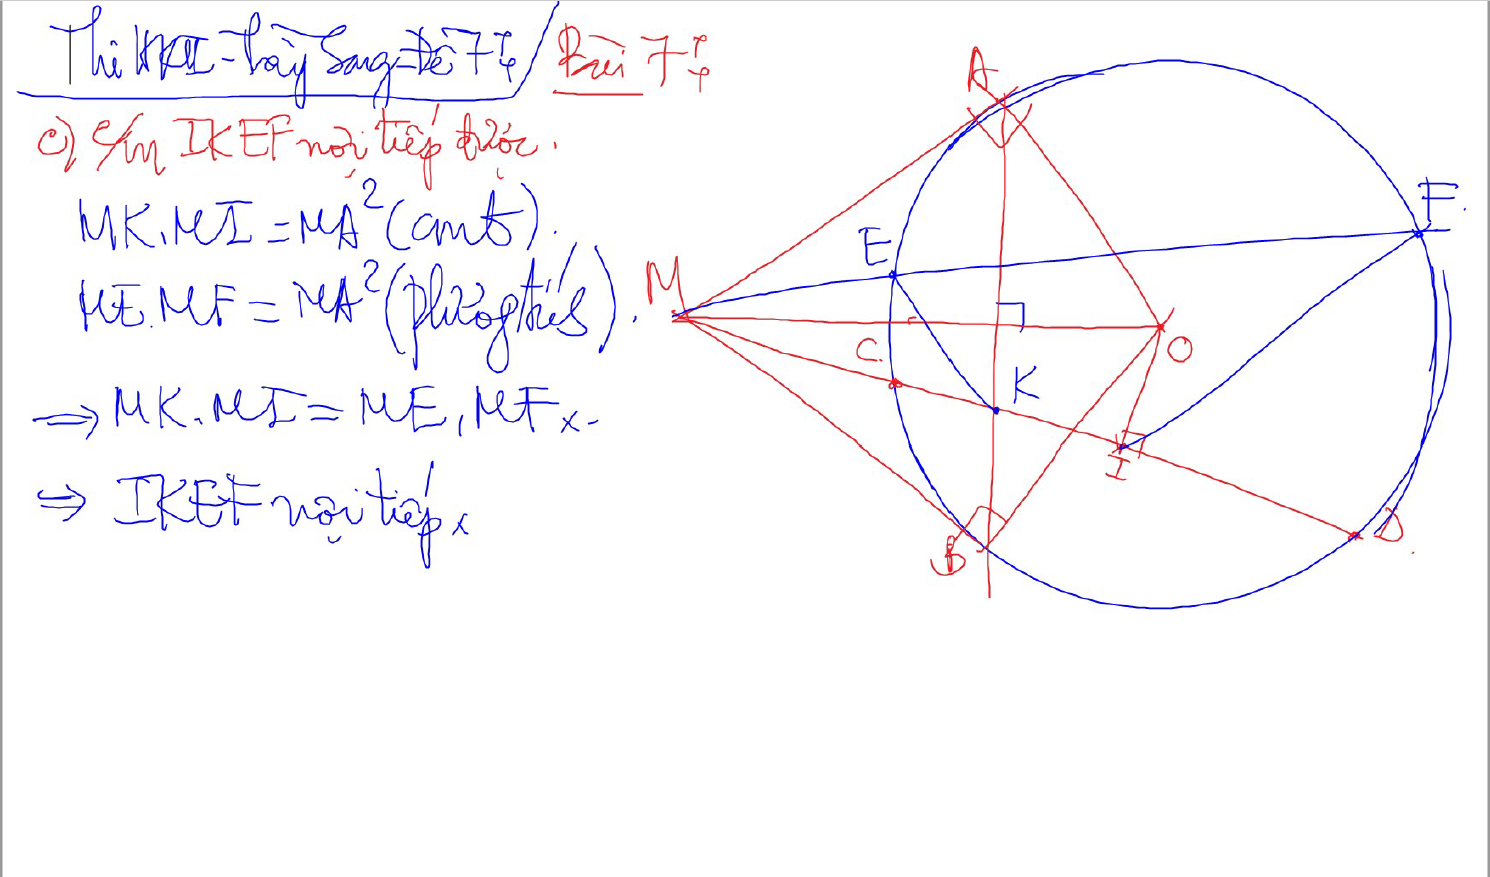 Thi HKI - Thầy Sang - Đề 7
Bài 7
c) c/m IKEF nội tiếp được.
MK.MI = MA² (cmt).
ME.MF = MA² (phương tích).
⇒ MK.MI = ME.MF
⇒ IKEF nội tiếp
A
F
E
M
C
O
K
I
B
D